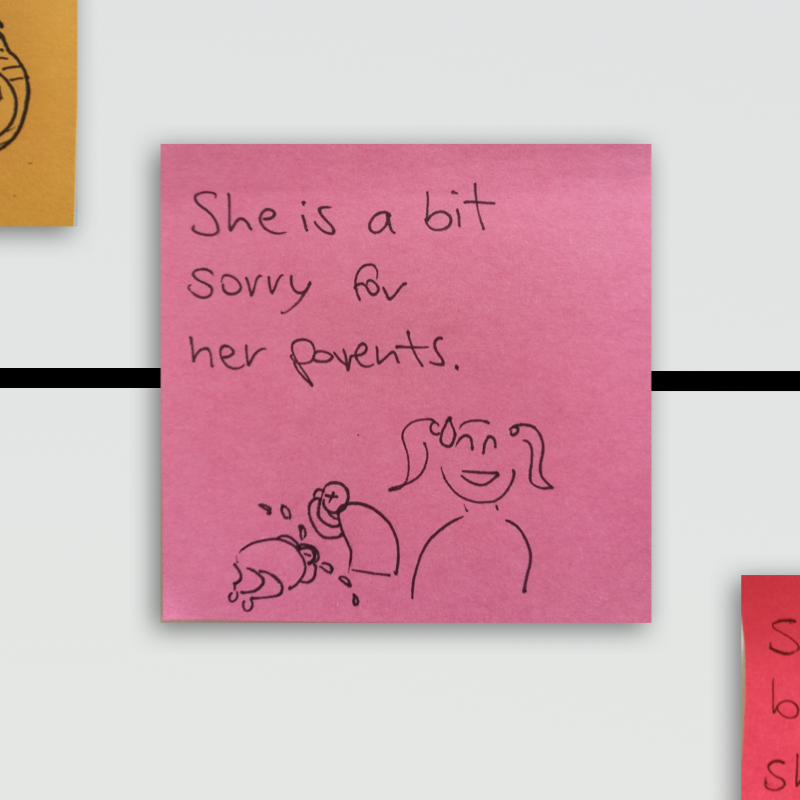 She is a bit
sorry for
her parents.
S
b
sh